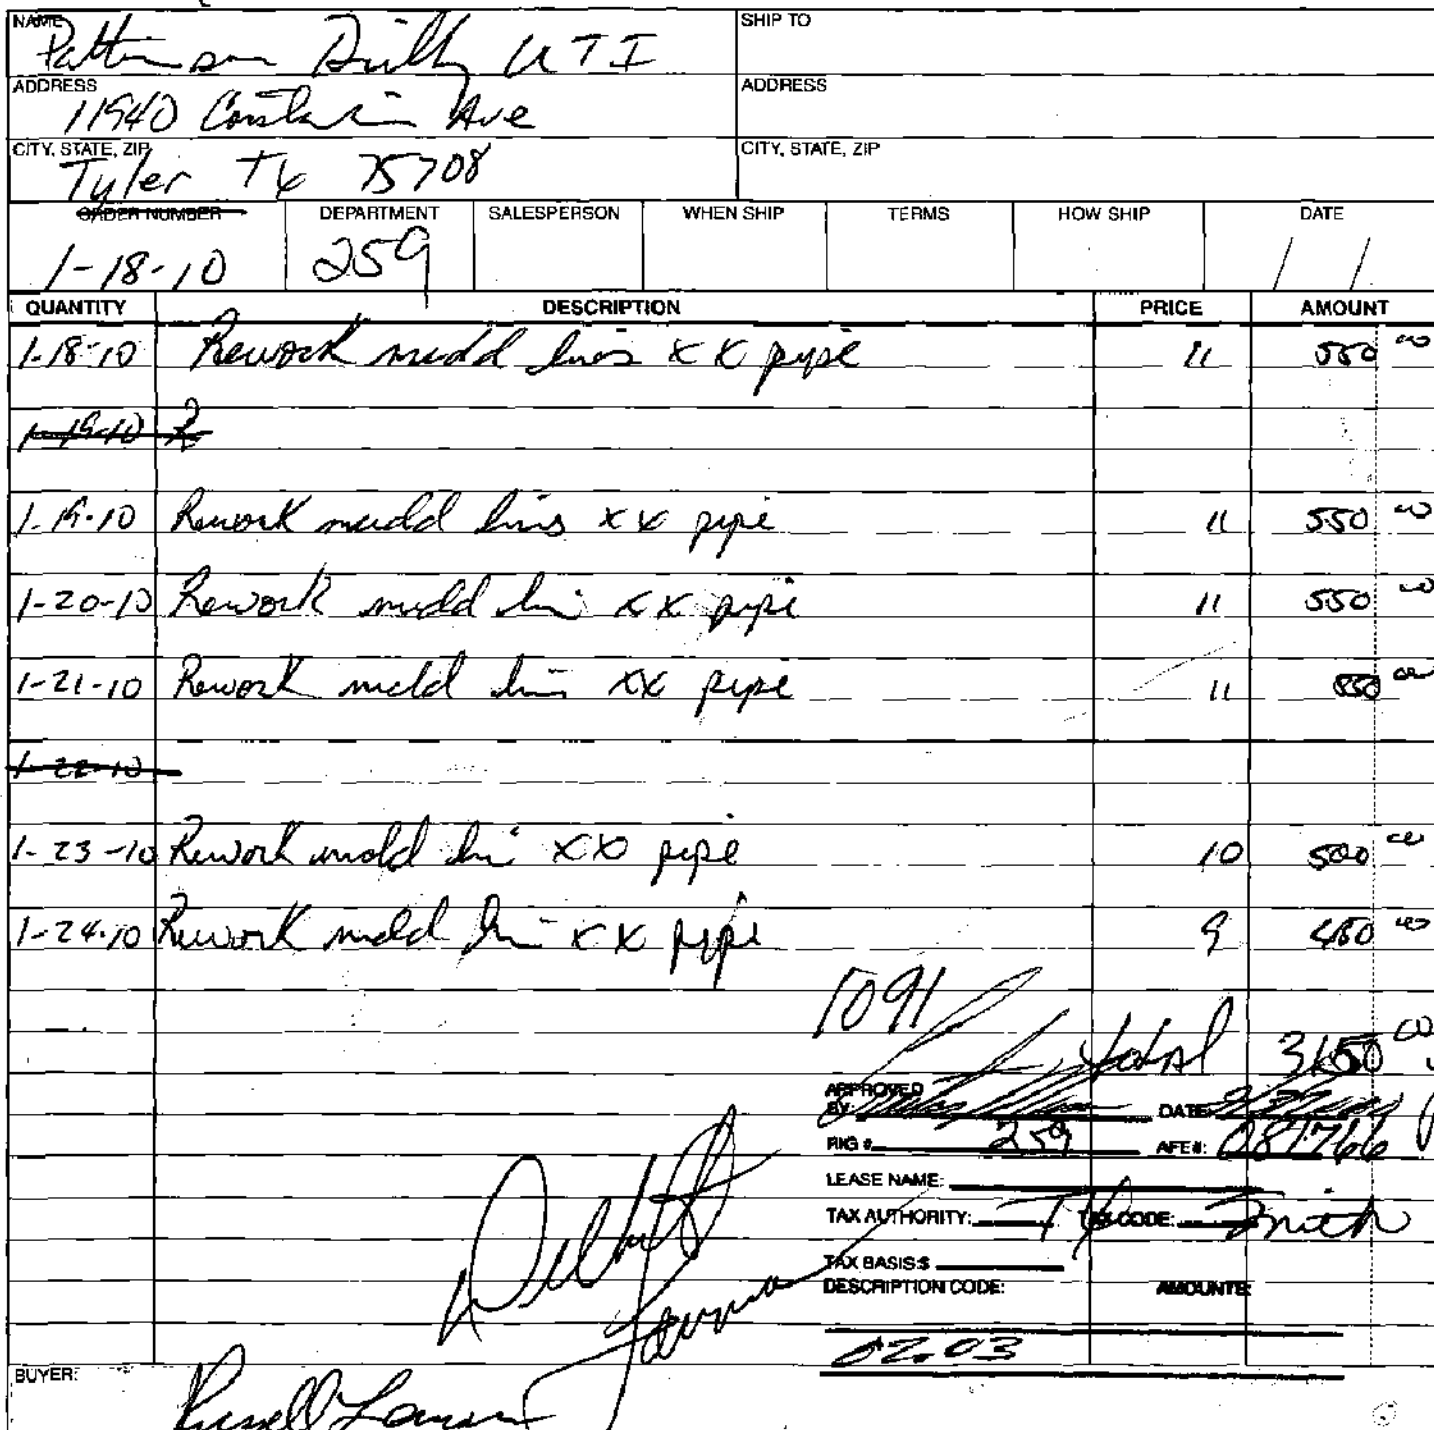 NAME
SHIP TO
UTI
ADDRESS
ADDRESS
11940 Ave
CITY, STATE, ZIP
CITY, STATE, ZIP
Tyler TX 75708
ORDER NUMBER DEPARTMENT SALESPERSON WHEN SHIP TERMS HOW SHIP DATE
1-18-10 259 / /
QUANTITY DESCRIPTION PRICE AMOUNT
1-18-10 Rework mudd lines XX pipe 11 550 00
1-19-10
1-19-10 Rework mudd lins XX pipe 11 550 00
1-20-10 Rework mudd lin XX pipe 11 550 00
1-21-10 Rework mudd lin XX pipe 11 550 00
1-22-10
1-23-10 Rework mudd lin XX pipe 10 500 00
1-24-10 Rework mudd lin XX pipe 9 450 00
1091
total 3150 00
APPROVED
BY: DATE:
RIG #. 259 AFE#: 081766
LEASE NAME:
TAX AUTHORITY: TX TAX CODE: Smith
TAX BASIS:$
DESCRIPTION CODE: AMOUNTS:
02.03
BUYER:
Russell